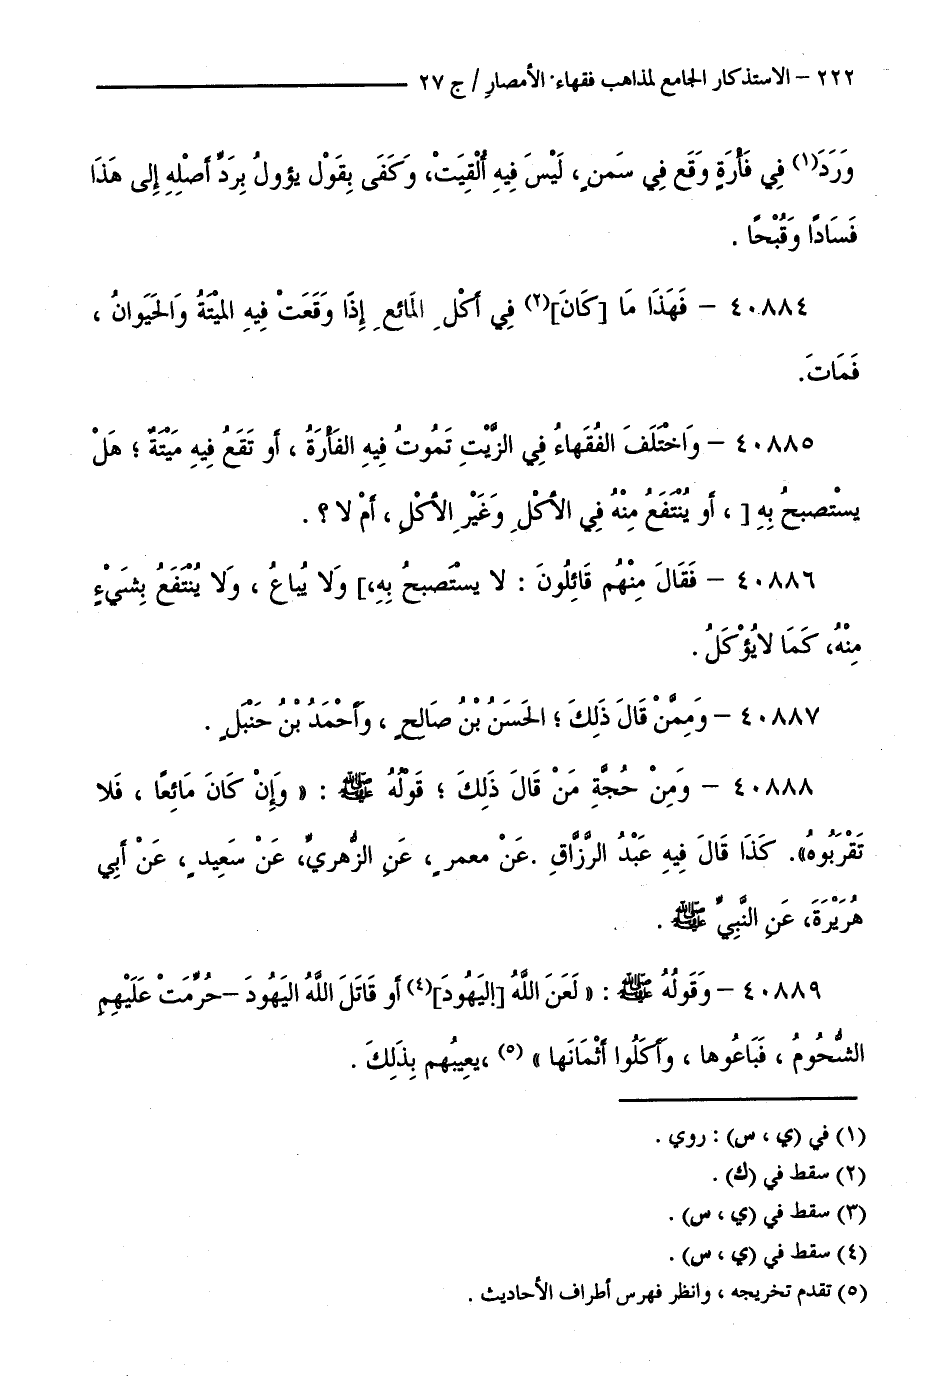 ٢٢٢ – الاستذكار الجامع لمذاهب فقهاء الأمصارِ / ج ٢٧
وَرَدَ(١) فِي فَأْرَةٍ وَقَع فِي سَمنٍ، لَيْسَ فِيهِ أُلْقِيَتْ، وَكَفَى بِقَولٍ يؤولُ بِرَدِّ أَصْلِهِ إِلى هَذَا
فَسَادًا وَقُبْحًا .
٤٠٨٨٤ – فَهَذَا مَا [كَانَ](٢) فِي أَكْلِ المَائعِ إِذَا وَقَعَتْ فِيهِ الميْتَةُ وَالحَيَوانُ ،
فَمَاتَ.
٤٠٨٨٥ – وَاخْتَلَفَ الفُقَهاءُ فِي الزَّيْتِ تَموتُ فِيهِ الفَأْرَةُ ، أو تَقَعُ فِيهِ مَيْتَةٌ ؛ هَلْ
يستْصبحُ بِهِ [ ، أو يُنْتَفَعُ مِنْهُ فِي الأَكْلِ وَغَيْرِ الأَكْلِ ، أَمْ لا ؟ .
٤٠٨٨٦ – فَقَالَ مِنْهُم قَائِلُونَ : لا يستْصبحُ بِهِ،] وَلا يُباعُ ، وَلا يُنْتَفَعُ بِشَيْءٍ
مِنْهُ، كَمَا لايُؤْكَلُ .
٤٠٨٨٧ – وَمِمَّنْ قَالَ ذَلِكَ ؛ الحَسَنُ بْنُ صَالِحٍ ، وَأَحْمَدُ بْنُ حَنْبَلٍ .
٤٠٨٨٨ – وَمِنْ حُجَّةِ مَنْ قَالَ ذَلِكَ ؛ قَوْلُهُ ﷺ : « وَإِنْ كَانَ مَائعًا ، فَلا
تَقْرَبُوهُ». كَذَا قَالَ فِيهِ عَبْدُ الرَّزَّاقِ .عَنْ معمرٍ ، عَنِ الزُّهريِّ، عَنْ سَعِيدٍ ، عَنْ أَبِي
هُرَيْرَةَ، عَنِ النَّبِيِّ ﷺ .
٤٠٨٨٩ – وَقَولُهُ ﷺ : « لَعَنَ اللَّهُ [اليَهُودَ](٤) أو قَاتَلَ اللَّهُ اليَهُودَ –حُرِّمَتْ عَلَيْهِمِ
الشُّحُومُ ، فَبَاعُوها ، وَأَكَلُوا أَثْمَانَها » (٥) ،يعِيبُهم بِذَلِكَ .
(١) في (ي ، س) : روي .
(٢) سقط في (ك) .
(٣) سقط في (ي ، س) .
(٤) سقط في (ي ، س) .
(٥) تقدم تخريجه ، وانظر فهرس أطراف الأحاديث .